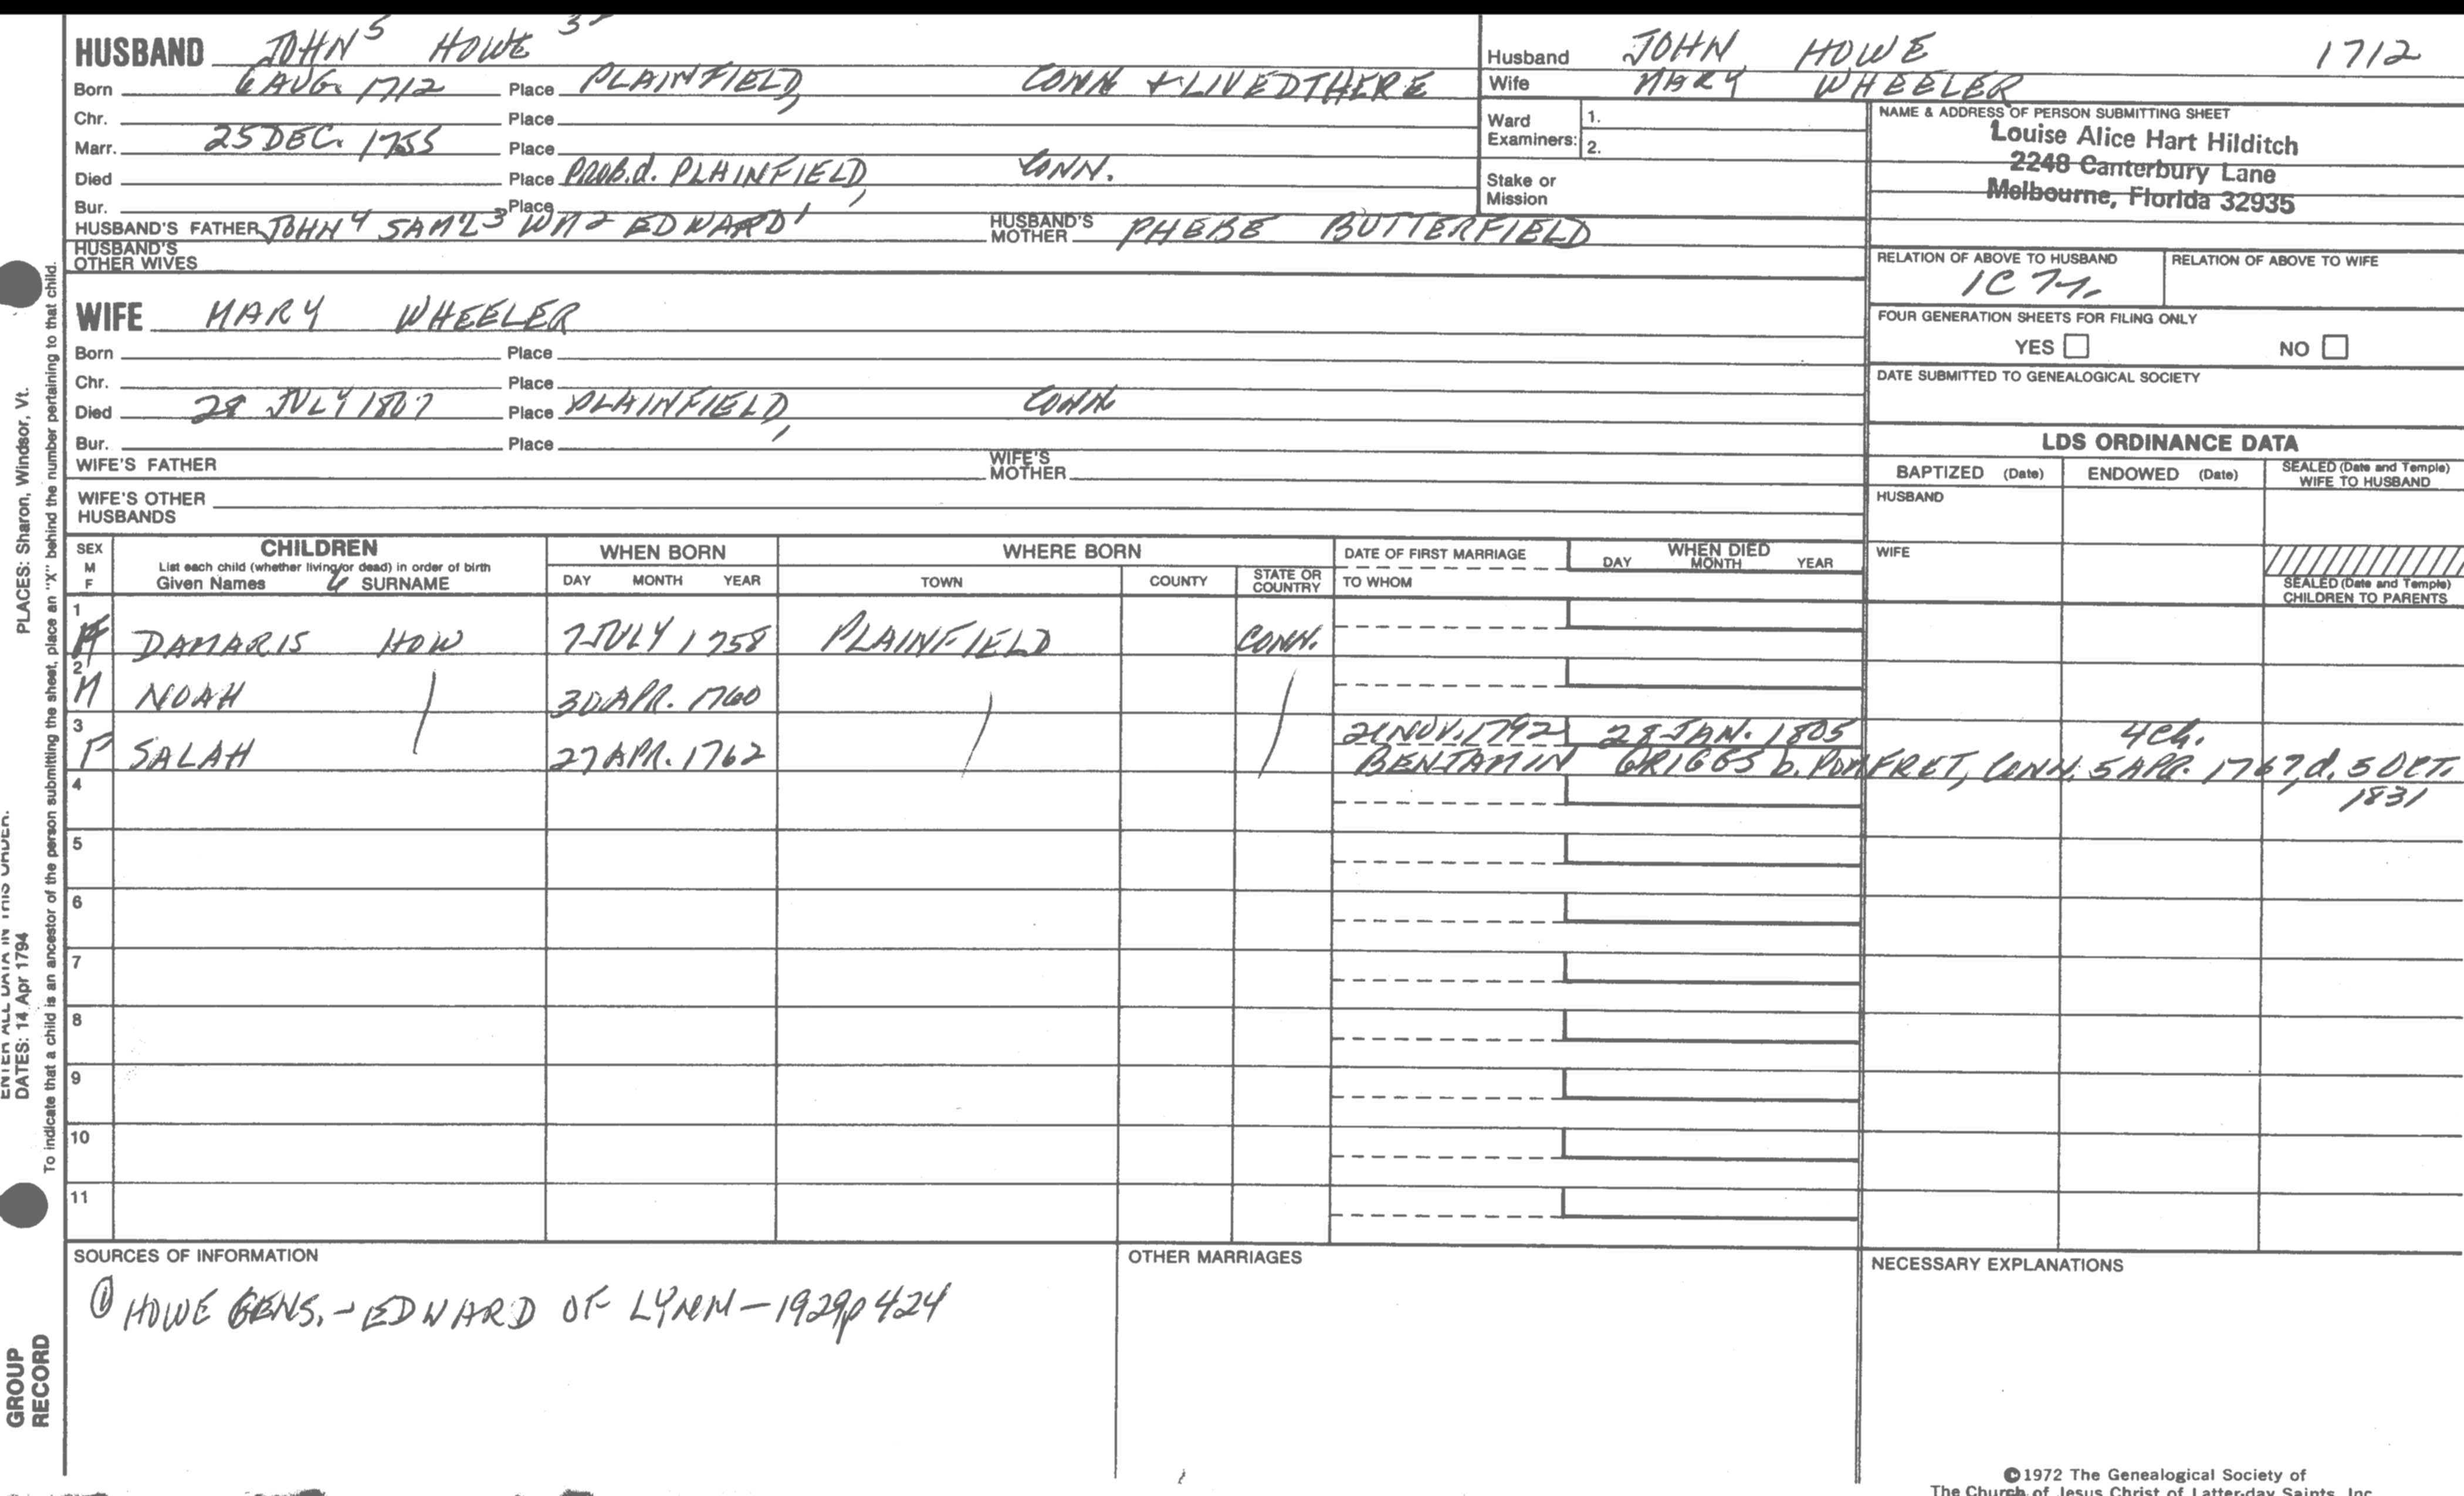 HUSBAND JOHN 5 HOWE
Born 6 AUG. 1712 Place PLAINFIELD, CONN + LIVED THERE
Chr. Place
Marr. 25 DEC. 1755 Place
Died Place PROB. d. PLAINFIELD, CONN.
Bur. Place
HUSBAND'S FATHER JOHN 4 SAM'L 3 WM 2 EDWARD 1 HUSBAND'S MOTHER PHEBE BUTTERFIELD
HUSBAND'S OTHER WIVES
WIFE MARY WHEELER
Born Place
Chr. Place
Died 28 JULY 1807 Place PLAINFIELD, CONN
Bur. Place
WIFE'S FATHER WIFE'S MOTHER
WIFE'S OTHER HUSBANDS
Husband JOHN HOWE 1712
Wife MARY WHEELER
Ward Examiners: 1.
2.
Stake or Mission
NAME & ADDRESS OF PERSON SUBMITTING SHEET
Louise Alice Hart Hilditch
2248 Canterbury Lane
Melbourne, Florida 32935
RELATION OF ABOVE TO HUSBAND RELATION OF ABOVE TO WIFE
1C 7r.
FOUR GENERATION SHEETS FOR FILING ONLY
YES NO
DATE SUBMITTED TO GENEALOGICAL SOCIETY
LDS ORDINANCE DATA
BAPTIZED (Date) ENDOWED (Date) SEALED (Date and Temple) WIFE TO HUSBAND
HUSBAND
WIFE
SEALED (Date and Temple) CHILDREN TO PARENTS
SEX M F CHILDREN WHEN BORN WHERE BORN DATE OF FIRST MARRIAGE WHEN DIED
List each child (whether living or dead) in order of birth
Given Names 6 SURNAME DAY MONTH YEAR TOWN COUNTY STATE OR COUNTRY TO WHOM DAY MONTH YEAR
1 F DAMARIS HOW 7 JULY 1758 PLAINFIELD CONN.
2 M NOAH 30 APR. 1760
3 F SALAH 27 APR. 1762 21 NOV. 1792 28 JAN. 1805 4 ch.
BENJAMIN GRIGGS b. POMFRET, CONN. 5 APR. 1767, d. 5 OCT. 1831
4
5
6
7
8
9
10
11
SOURCES OF INFORMATION
① HOWE GENS. - EDWARD OF LYNN - 1929 p 424
OTHER MARRIAGES
NECESSARY EXPLANATIONS
©1972 The Genealogical Society of
The Church of Jesus Christ of Latter-day Saints, Inc.
PLACES: Sharon, Windsor, Vt.
To indicate that a child is an ancestor of the person submitting the sheet, place an "X" behind the number pertaining to that child.
ENTER ALL DATA IN THIS ORDER:
DATES: 14 Apr 1794
GROUP
RECORD